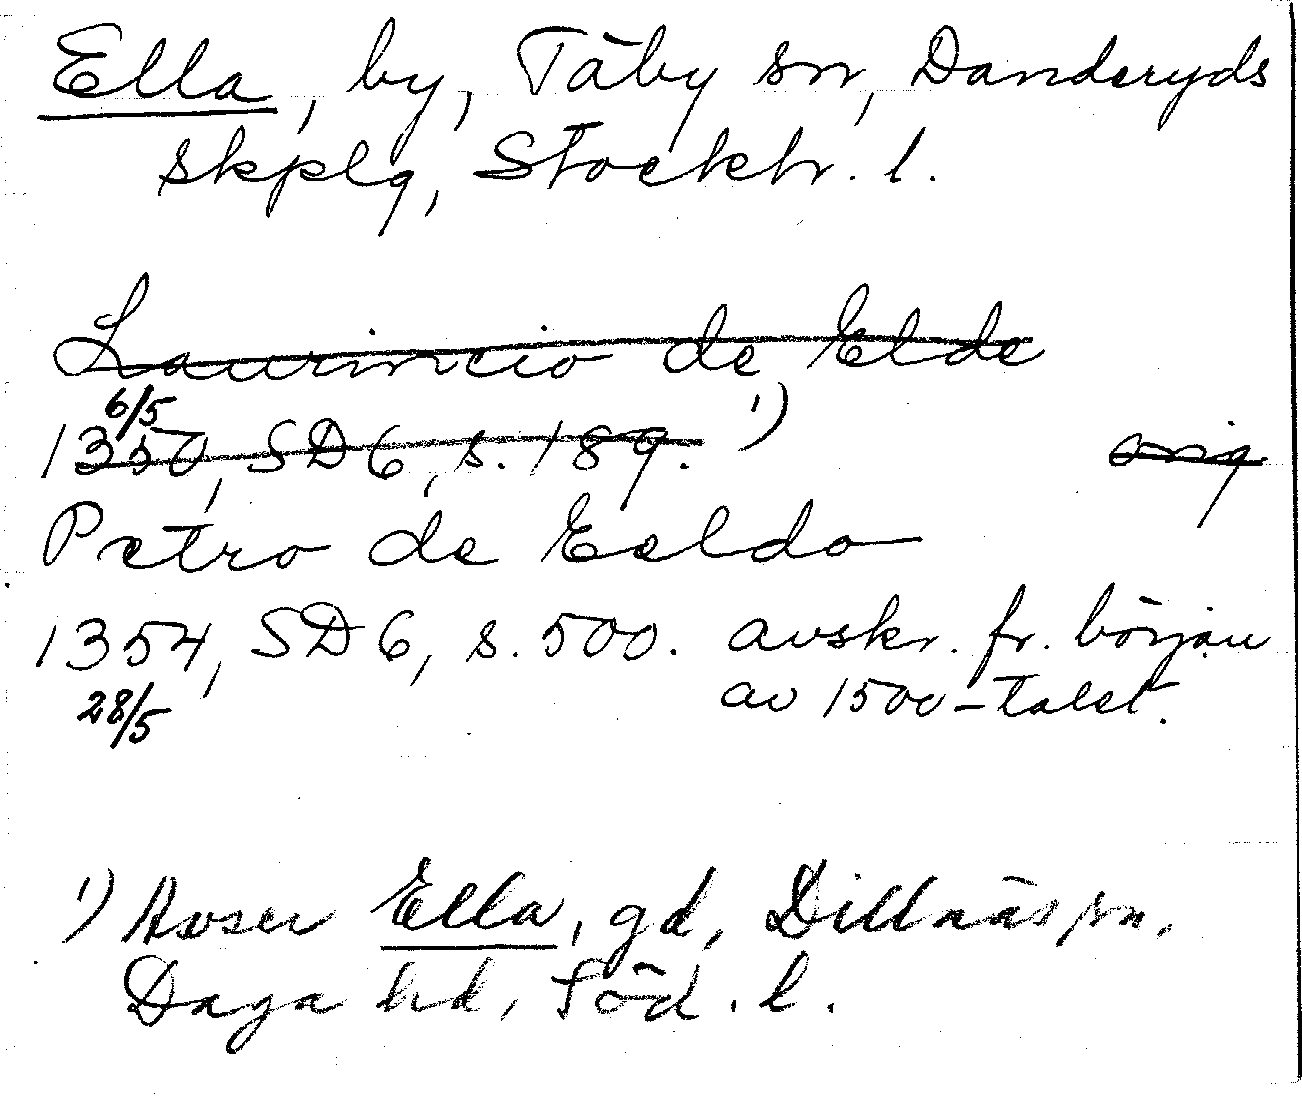 Ella, by, Täby sn, Danderyds
skplg, Stockh. l.
Laurincio de Elde
6/5
1350, SD 6, s. 189. 1) orig
Petro de Eeldo
1354, SD 6, s. 500. avskr. fr. början
28/5 av 1500-talet.
1) Avser Ella, gd, Dillnäs sn,
Daga hd, Söd. l.